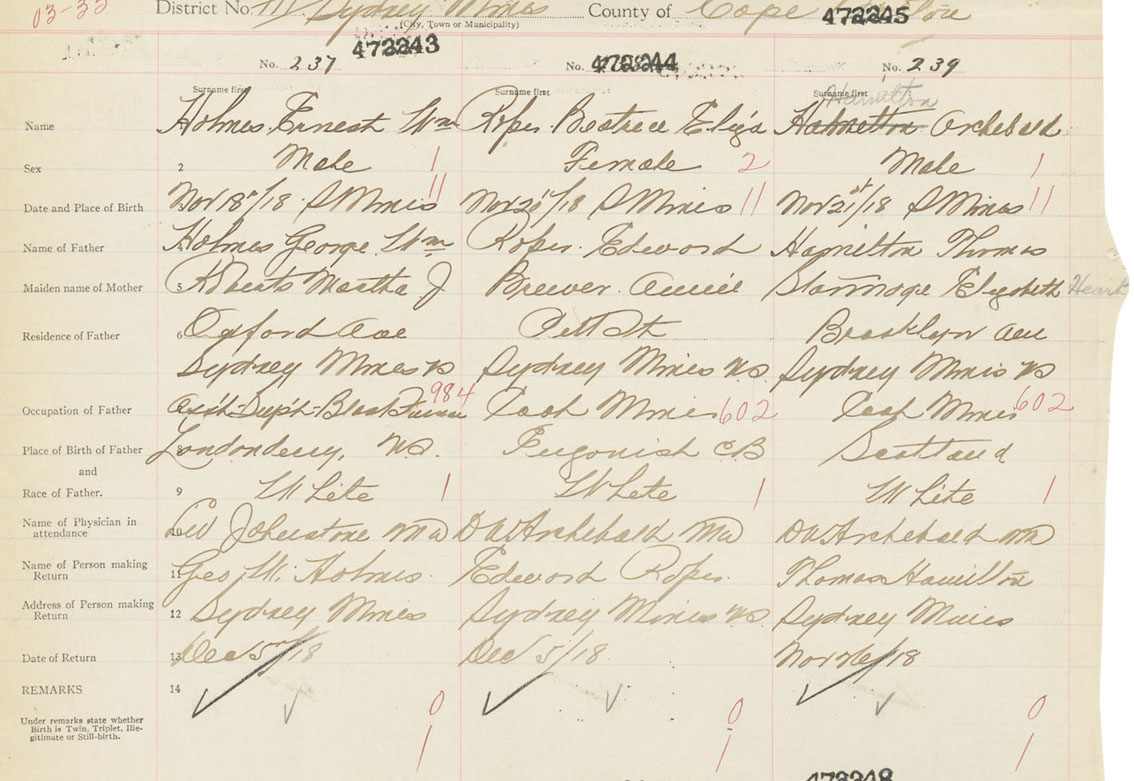 03-33
District No. Sydney Mines County of Cape
(City, Town or Municipality)
472243 472244 472245
No. 237 No. No. 239
Surname first Surname first Surname first
Hamilton
Name Holmes Ernest Wm Roper Beatrice Eliza Archebald
Sex 2 Male 1 Female 2 Male 1
Date and Place of Birth 3 Nov 18/18 S Mines 11 Nov 20/18 S Mines 11 Nov 21st/18 S Mines 11
Name of Father Holmes George Wm Roper Edword Hamilton Thomas
Maiden name of Mother 5 Roberts Martha J Brewer Annie Elizebeth
Residence of Father 6 Oxford Ave Pitt St Brooklyn Ave
Sydney Mines NS Sydney Mines NS Sydney Mines NS
Occupation of Father 984 Coal Miner 602 Coal Miner 602
Place of Birth of Father 8 Londonderry, NS. CB Scotland
and
Race of Father. 9 White 1 White 1 White 1
Name of Physician in
attendance 10 Johnstone MD DW Archebald MD DW Archebald MD
Name of Person making
Return 11 Geo W. Holmes. Edword Roper. Thomas Hamilton
Address of Person making
Return 12 Sydney Mines Sydney Mines NS Sydney Mines
Date of Return 13 Dec 5/18 Dec 5/18 Nov 26/18
REMARKS 14
Under remarks state whether 0 0 0
Birth is Twin, Triplet, Ille-
gitimate or Still-birth. 1 1 1
472248